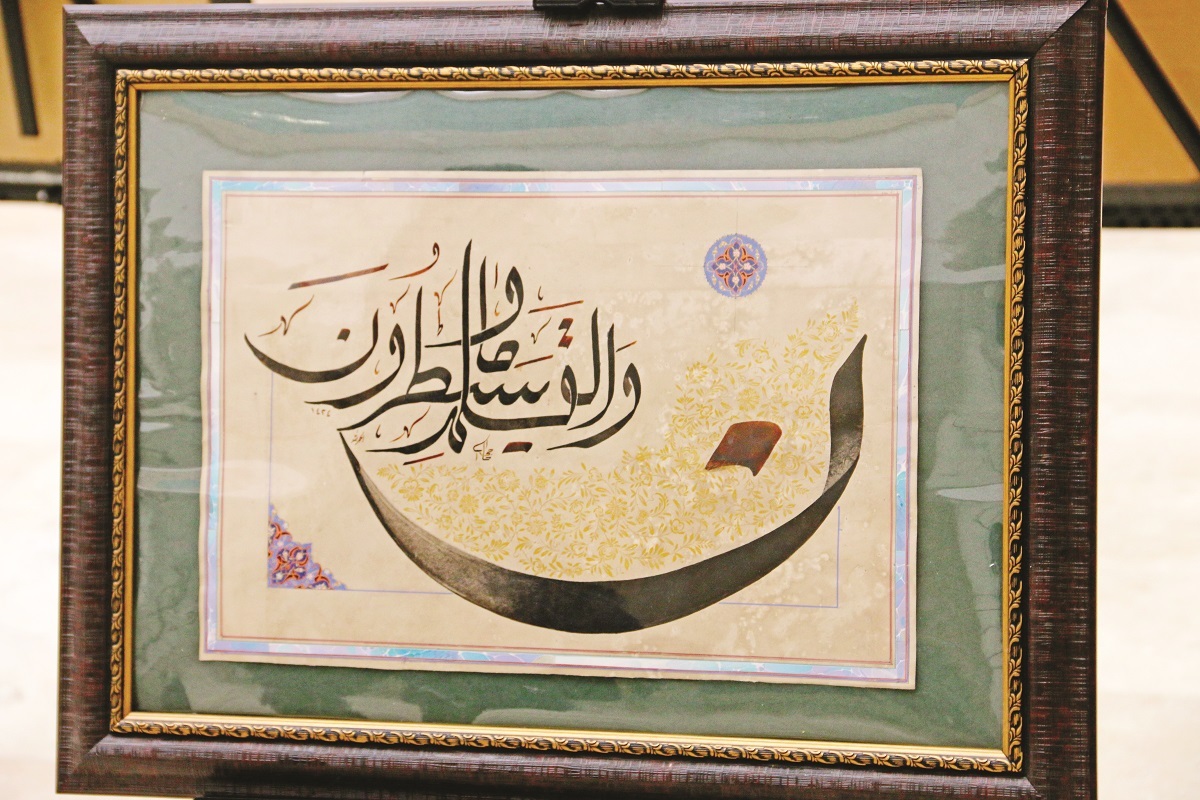 ن
والقلم وما يسطرون